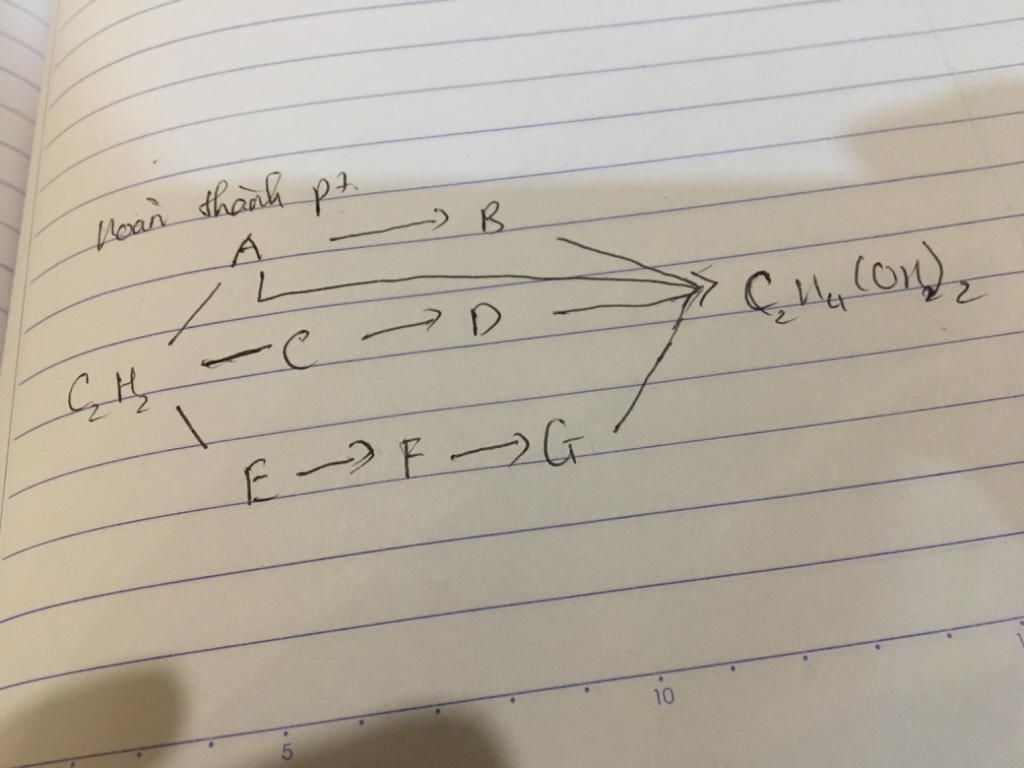 Hoàn thành pt.
A → B
C₂H₄(OH)₂
C → D
C₂H₂
E → F → G
10
5